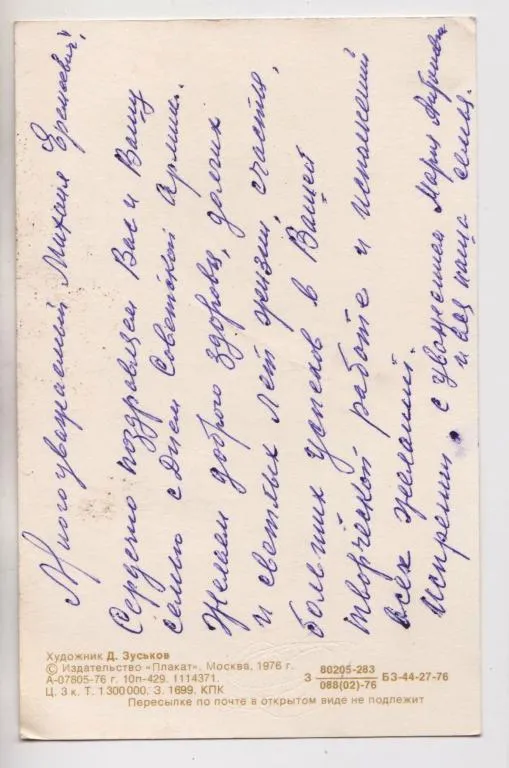 Многоуважаемый Михаил Еремеевич!
Сердечно поздравляем Вас и Вашу
семью с Днем Советской Армии.
Желаем доброго здоровья, долгих
и светлых лет жизни, счастья,
больших успехов в Вашей
творческой работе и исполнений
всех желаний.
Искренни с уважением Мария
и вся наша семья.
Художник Д. Зуськов
© Издательство «Плакат». Москва, 1976 г.
А-07805-76 г. 10п-429. 1114371.
Ц. 3 к. Т. 1 300 000. З. 1699. КПК
З 80205-283
088(02)-76 БЗ-44-27-76
Пересылке по почте в открытом виде не подлежит